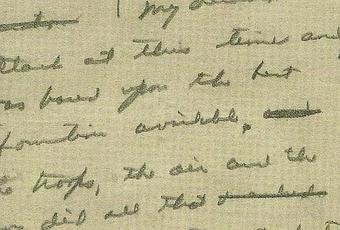 My
attack at this time and
was based upon the best
formation available,
troops, the air and the
did all that